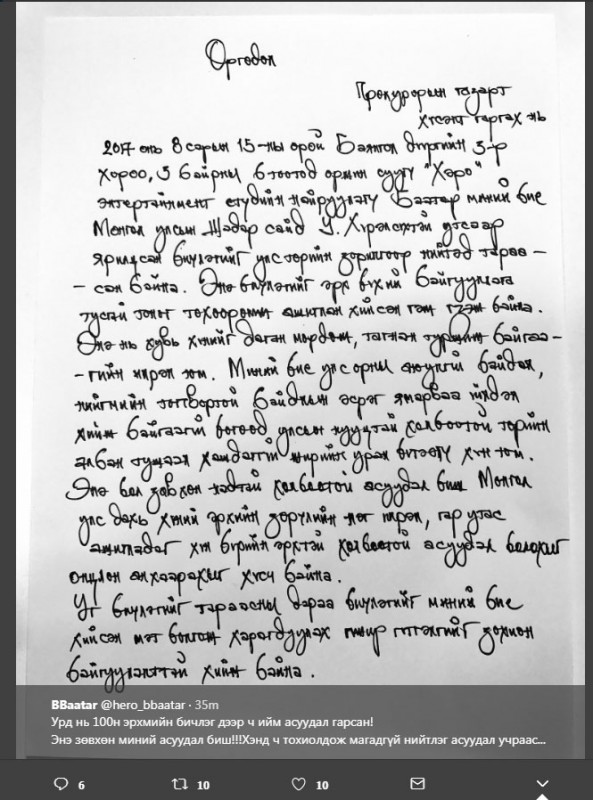 Өргөдөл
Прокурорын газарт
хүсэлт гаргах нь
2017 оны 8 сарын 15-ны орой Баянгол дүүргийн 3-р
хороо, 3 байрны 6 тоотод оршин суугч "Хөро"
энтертайнмент студийн найруулагч Баатар миний бие
Монгол улсын Шадар сайд У. Хүрэлсүхтэй утсаар
ярилцсан бичлэгийг улс төрийн зорилгоор нийтэд тараа-
-сан байна. Энэ бичлэгийг эрх бүхий байгууллага
тусгай тоног төхөөрөмж ашиглан хийсэн гэж үзэж байна.
Энэ нь хувь хүнийг даган мөрдөж, тагнан туршиж байгаа-
-гийн илрэл юм. Миний бие улс орны аюулгүй байдал,
нийгмийн тогтвортой байдлын эсрэг ямарваа үйлдэл
хийж байгаагүй бөгөөд улсын нууцтай холбоотой төрийн
албан тушаал хашдаггүй жирийн уран бүтээлч хүн юм.
Энэ бол зөвхөн надтай холбоотой асуудал биш Монгол
улс дахь хүний эрхийн зөрчлийн нэг илрэл, гар утас
ашигладаг хүн бүрийн эрхтэй холбоотой асуудал болохыг
онцлон анхаарахыг хүсч байна.
Уг бичлэгийг тараасны дараа бичлэгийг миний бие
хийсэн мэт болгож харагдуулах гүжир гүтгэлгийг зохион
байгуулалттай хийж байна.
BBaatar @hero_bbaatar · 35m
Урд нь 100н эрхмийн бичлэг дээр ч ийм асуудал гарсан!
Энэ зөвхөн миний асуудал биш!!!Хэнд ч тохиолдож магадгүй нийтлэг асуудал учраас...
6 10 10